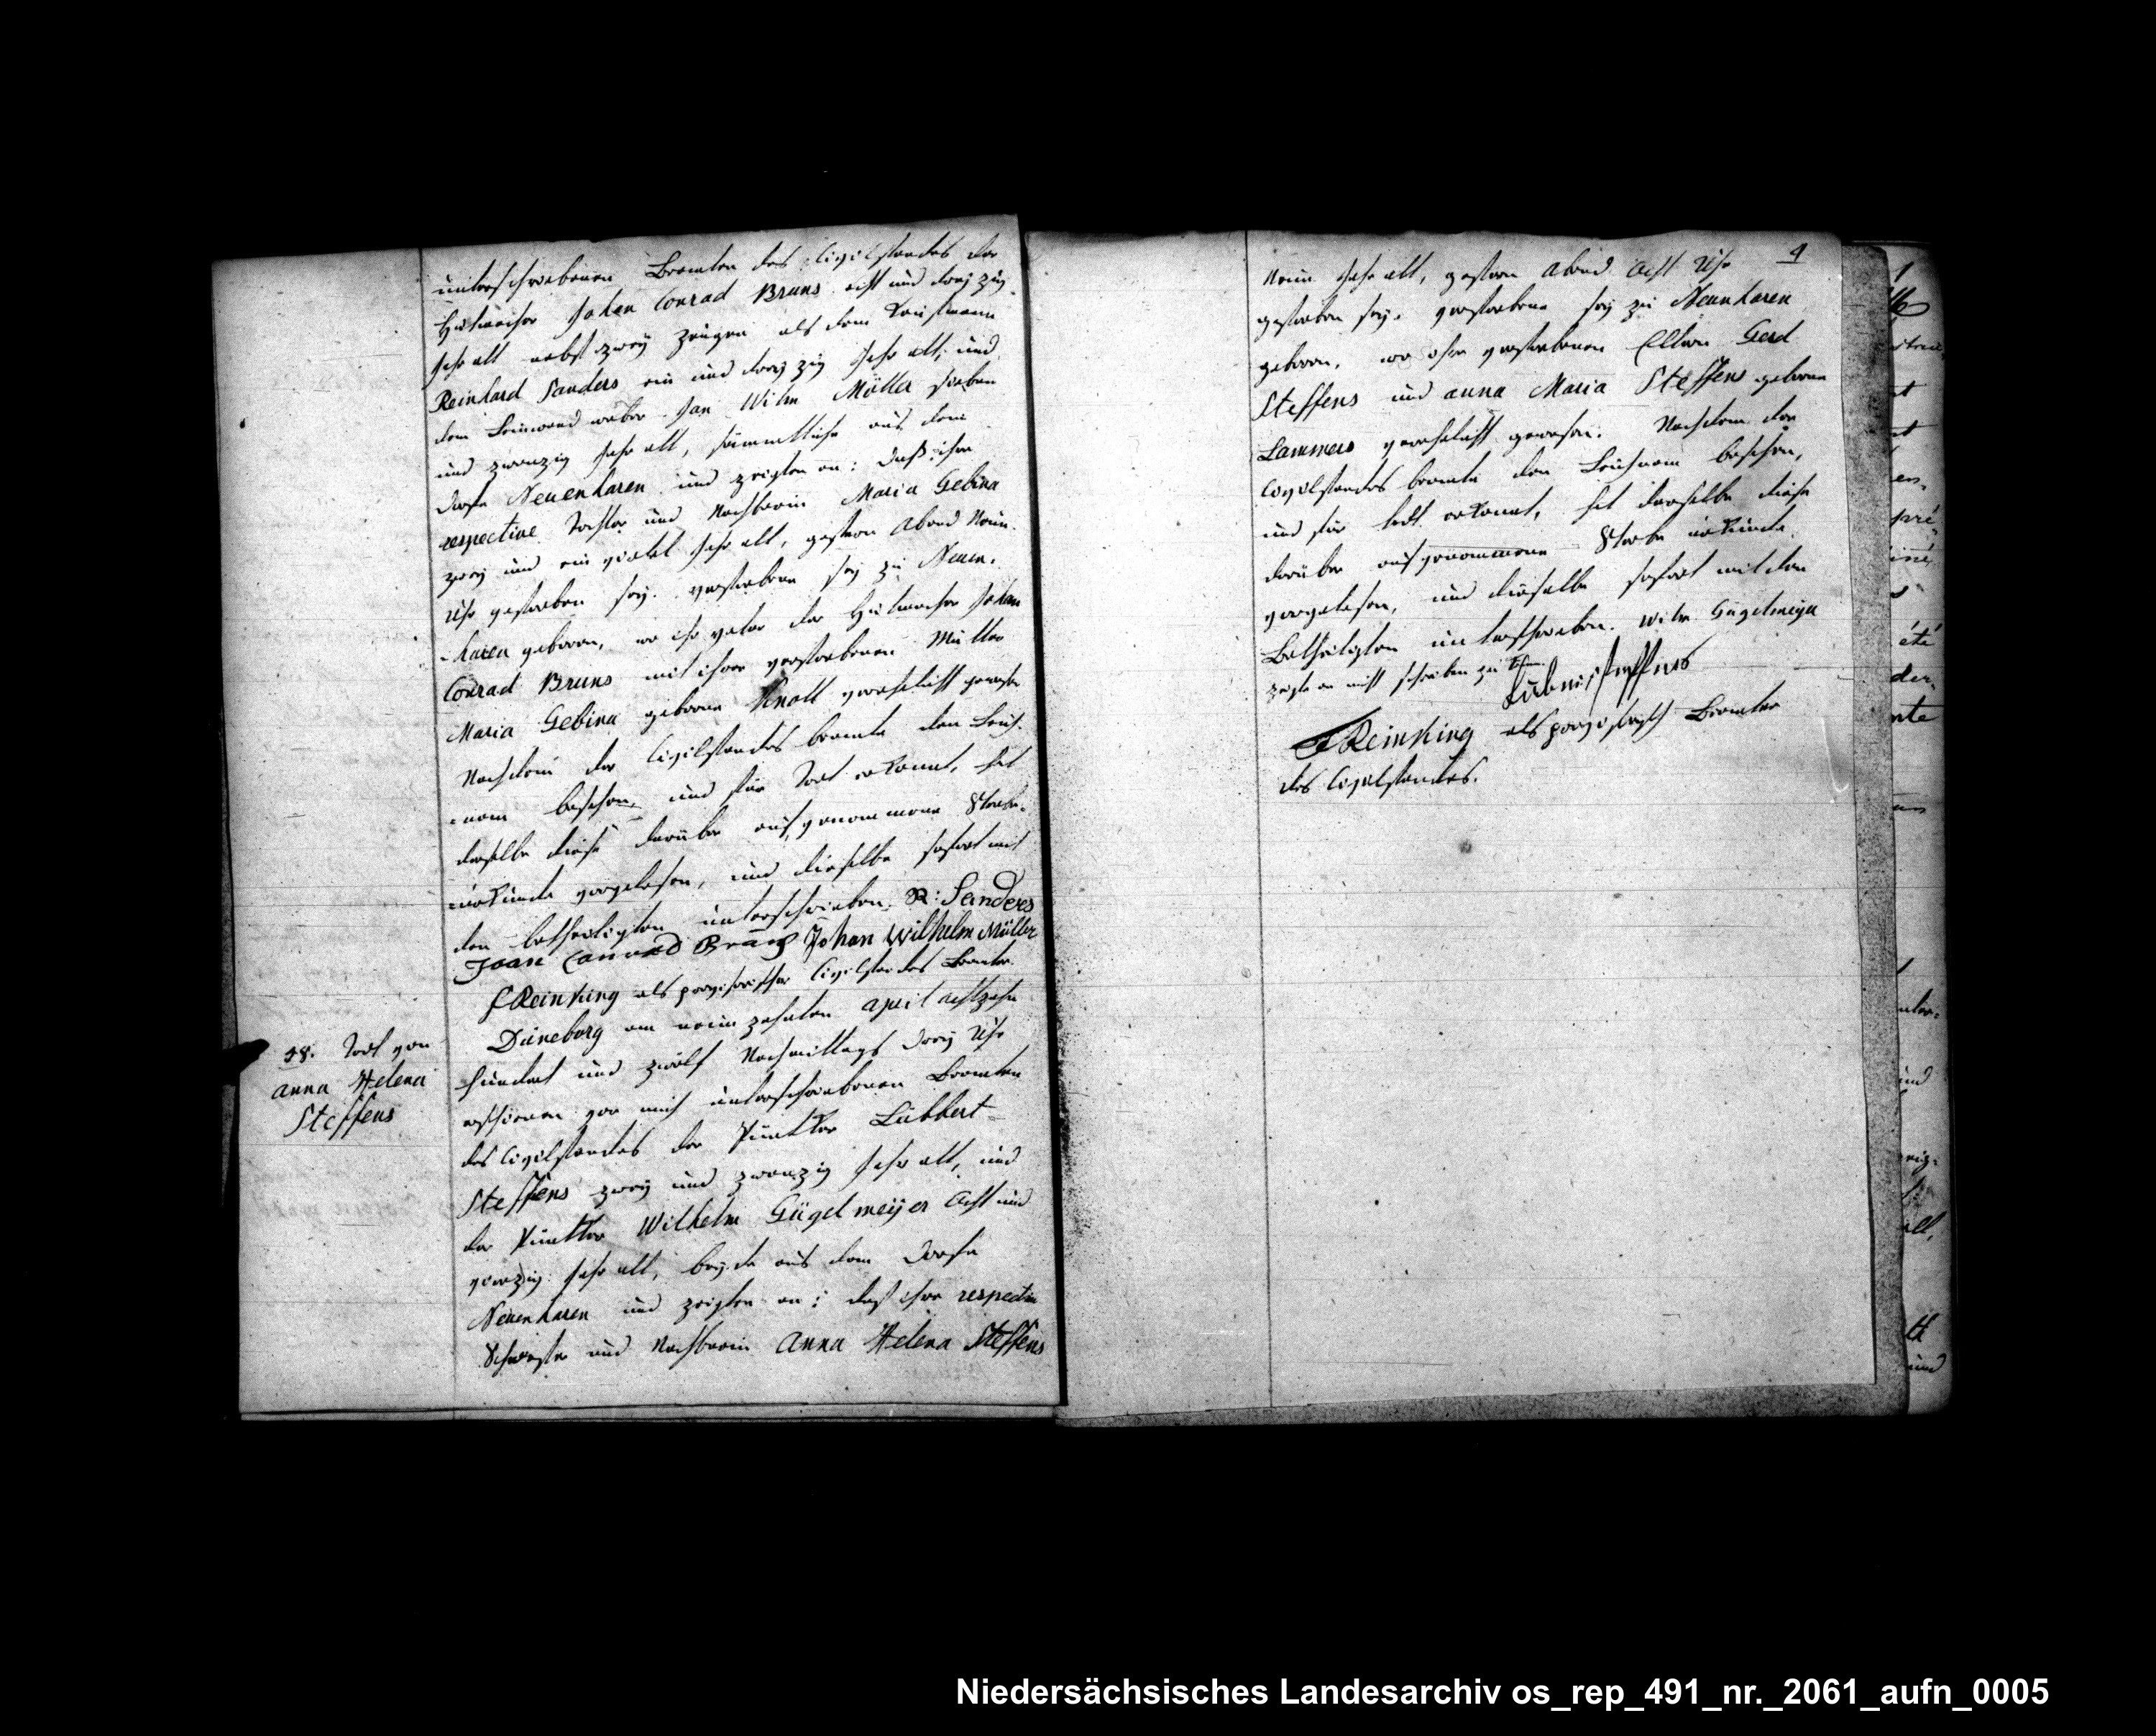 unterschriebenen Beamten des Civilstandes der
Hutmacher Johan Conrad Bruns acht und dreyzig
Jahr alt nebst zwey Zeugen als dem Kaufmann
Reinhard Sanders ein und dreyzig Jahr alt, und
dem Leinwand weber Jan Wilm Möller sieben
und zwanzig Jahr alt, sämmtliche aus dem
Dorfe Neuenharen und zeigten an: daß ihre
respective Tochter und Nachbarin Maria Gebina
zwey und ein viertel Jahr alt, gestern Abend Neun
Uhr gestorben sey. verstorbene sey zu Neuen-
-haren geboren, wo ihr vater der Hutmacher Johan
Conrad Bruns mit ihrer verstorbenen Mutter
Maria Gebina geborne Knoll verehelicht gewesen
Nachdem der Civilstandes beamte den Leich-
-nam besehen, und für Todt erkannt, hat
derselbe diese darüber aufgenommene Sterbe-
-urkunde vorgelesen, und dieselbe sofort mit
den betheiligten unterschrieben. R: Sanders
Joan Conrad Bruns Johan Wilhelm Müller
F Reinking als provisorischer Civilstandes Beamter
48. Todt von
Anna Helena
Steffens
Düneborg am neunzehnten April achtzehn
hundert und zwölf Nachmittags drey Uhr
erschienen vor mich unterschriebenen Beamten
des Civilstandes der Püntker Lübbert
Steffens zwey und zwanzig Jahr alt, und
der Püntker Wilhelm Gügelmeÿer Acht und
vierzig Jahr alt, beyde aus dem Dorfe
Neuenharen und zeigten an: daß ihre respective
Schwester und Nachbarin Anna Helena Steffens
4
Neun Jahr alt, gestern Abend Acht Uhr
gestorben sey. verstorbene sey zu Neuenharen
geboren, wo ihre verstorbenen Eltern Gerd
Steffens und Anna Maria Steffens geborne
Lammers verehelicht gewesen. Nachdem der
Civilstandes beamte den Leichnam besehen,
und für todt erkannt, hat derselbe diese
darüber aufgenommene Sterbe urkunde
vorgelesen, und dieselbe sofort mit den
Betheiligten unterschrieben. Wilm Gügelmeyer
zeigte an nicht schreiben zu
Steffens
F Reinking als provisorisch Beamter
des Civilstandes.
Niedersächsisches Landesarchiv os_rep_491_nr._2061_aufn_0005